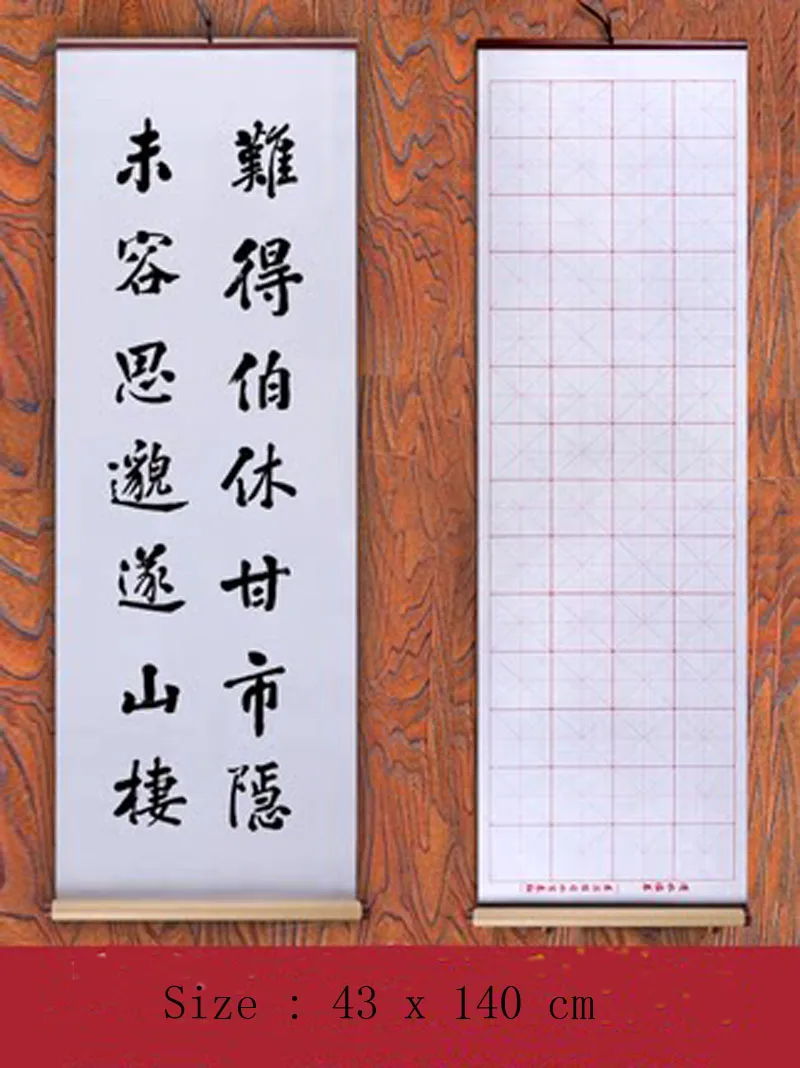 難得伯休甘市隱
未容思邈遂山棲
Size : 43 x 140 cm